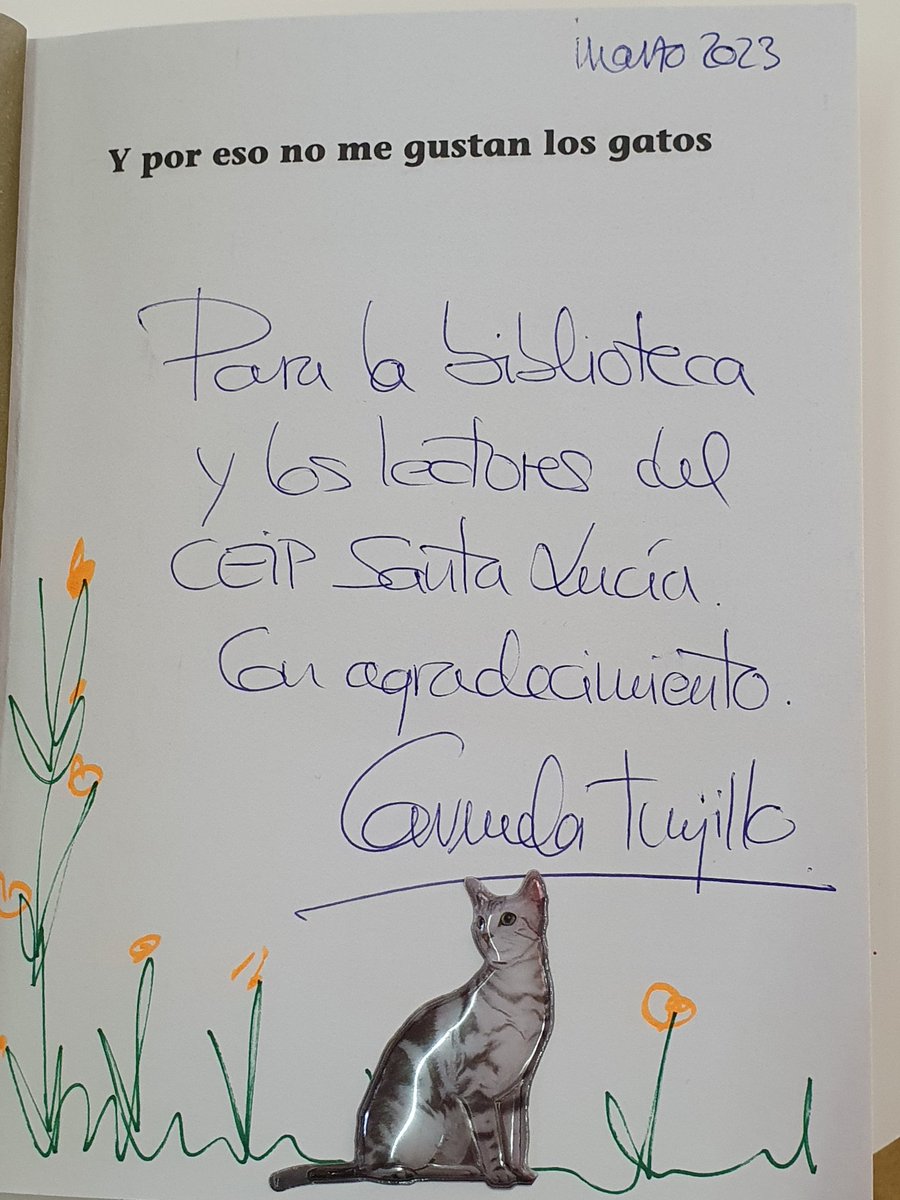 Marzo 2023
Y por eso no me gustan los gatos
Para la biblioteca
y los lectores del
CEIP Santa Lucía.
Con agradecimiento.
Trujillo